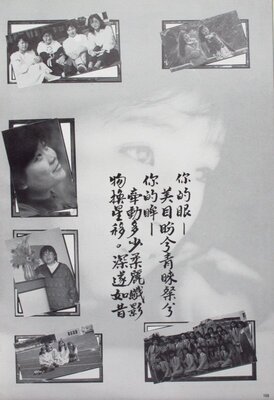 你的眼—
美目盼兮青睞粲兮
你的眸—
牽動多少柔麗纖影
物換星移。深邃如昔